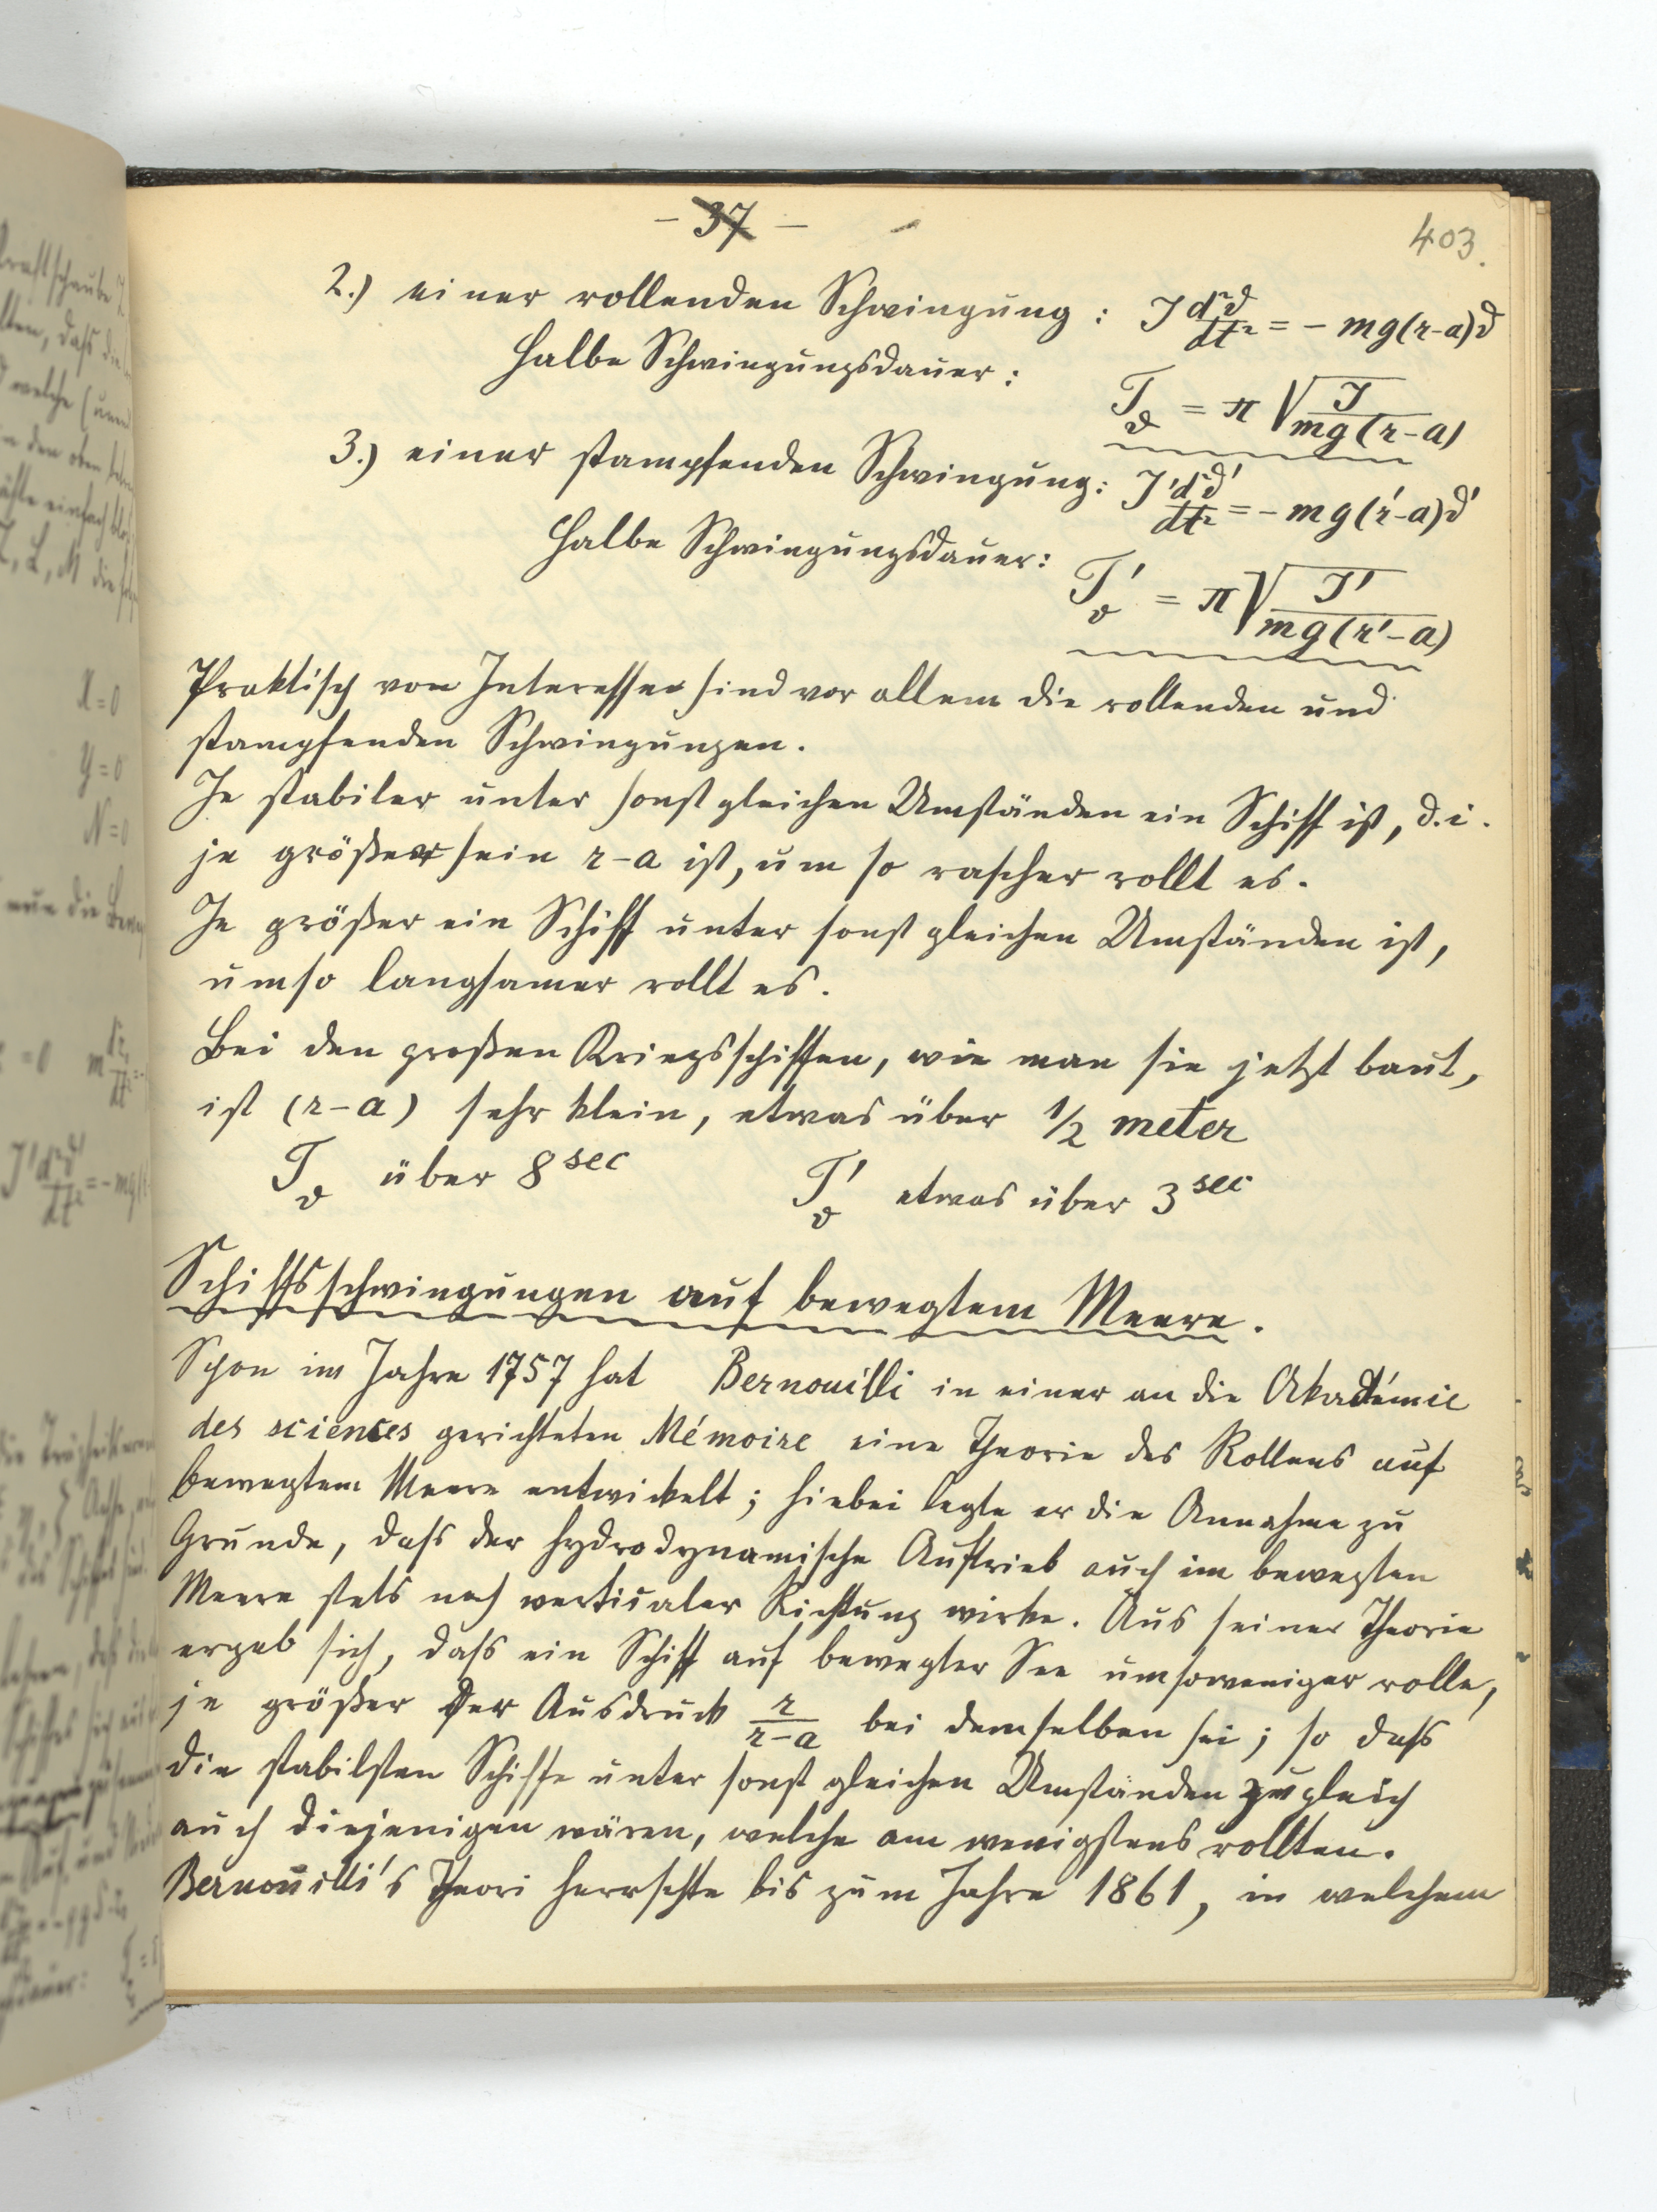 - 37 -
403.
2.) einer rollenden Schwingung: J d²ϑ/dt² = - mg(r-a)ϑ
Halbe Schwingungsdauer:
T_ϑ = π √(J/mg(r-a))
3.) einer stampfenden Schwingung: J' d²ϑ'/dt² = - mg(r'-a)ϑ'
Halbe Schwingungsdauer:
T'_ϑ = π √(J'/mg(r'-a))
Praktisch von Interesse sind vor allem die rollenden und
stampfenden Schwingungen.
Je stabiler unter sonst gleichen Umständen ein Schiff ist, d.i.
je größer sein r-a ist, um so rascher rollt es.
Je größer ein Schiff unter sonst gleichen Umständen ist,
umso langsamer rollt es.
Bei den großen Kriegsschiffen, wie man sie jetzt baut,
ist (r-a) sehr klein, etwas über 1/2 meter
T_ϑ über 8 sec T'_ϑ etwas über 3 sec
Schiffsschwingungen auf bewegtem Meere.
Schon im Jahre 1757 hat Bernouilli in einer an die Akadémie
des sciences gerichteten Mémoire eine Theorie des Rollens auf
bewegtem Meere entwickelt; hiebei legte er die Annahme zu
Grunde, dass der hydrodynamische Auftrieb auch im bewegten
Meere stets nach verticaler Richtung wirke. Aus seiner Theorie
ergab sich, dass ein Schiff auf bewegter See umsoweniger rolle,
je größer der Ausdruck r/r-a bei demselben sei; so dass
die stabilsten Schiffe unter sonst gleichen Umständen zugleich
auch diejenigen wären, welche am wenigstens rollten.
Bernouilli's Theori herrschte bis zum Jahre 1861, in welchem